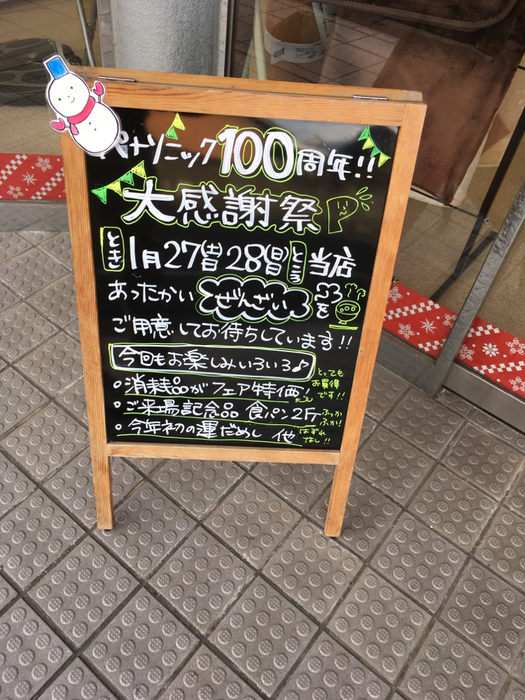 パナソニック100周年!!
大感謝祭 P
とき 1月27(土)28(日) ところ 当店
あったかい ぜんざい を
ご用意してお待ちしています!!
今回もお楽しみいろいろ♪
・消耗品がフェア特価! とってもお買得です!!
・ご来場記念品 食パン2斤 ふっかふか!
・今年初の運だめし 他 はずれなし!!